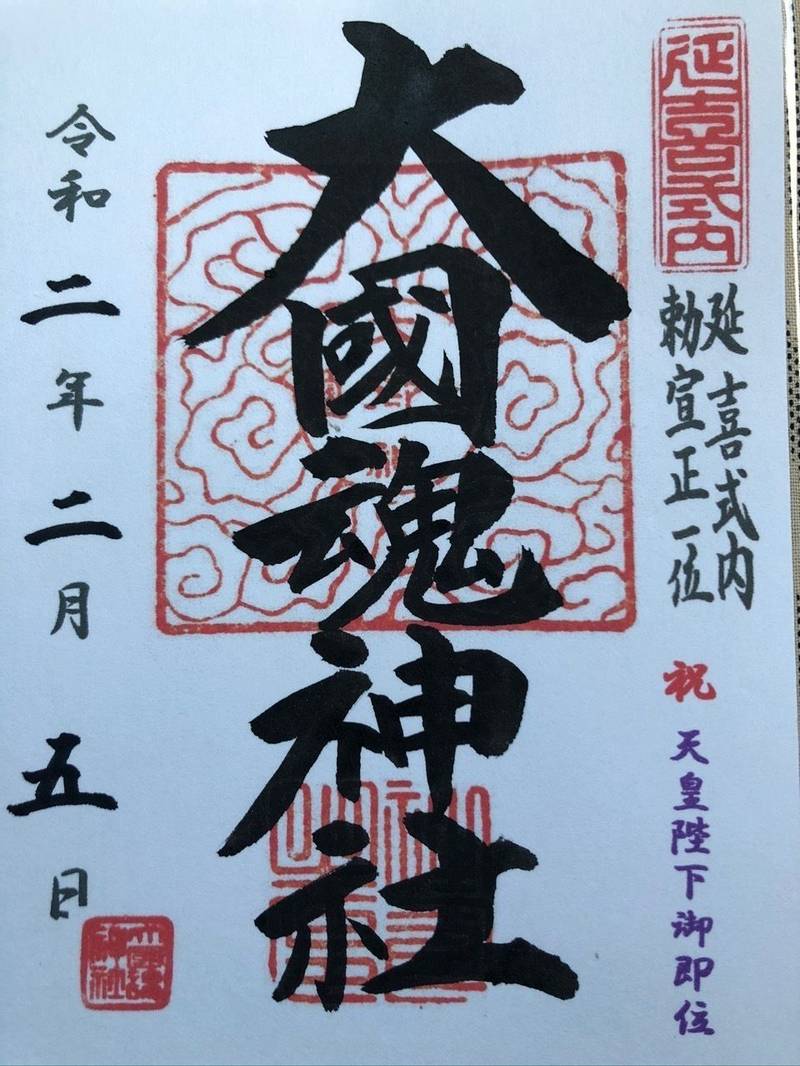 延喜式内
延喜式内
勅宣正一位
祝 天皇陛下御即位
大國魂神社
令和二年二月五日